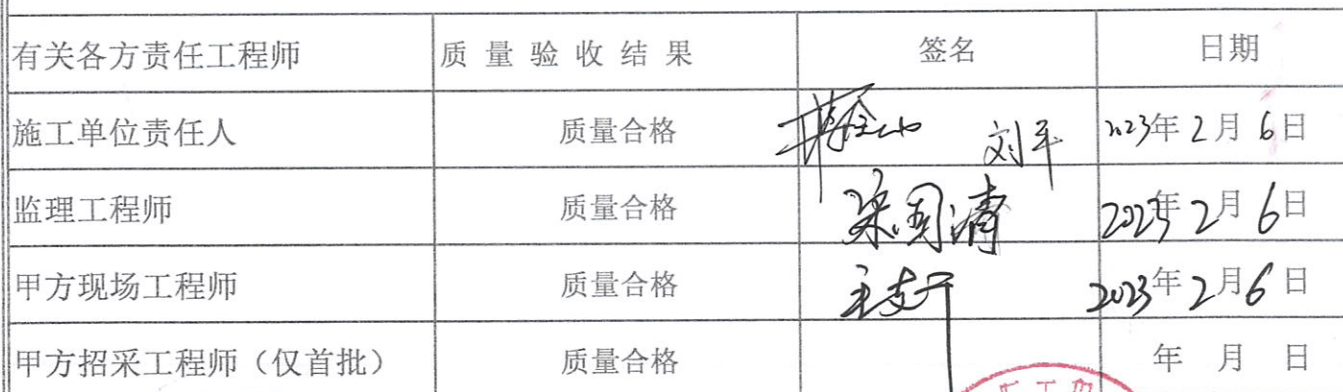 有关各方责任工程师 质量验收结果 签名 日期
施工单位责任人 质量合格 刘平 2023年2月6日
监理工程师 质量合格 梁国清 2023年2月6日
甲方现场工程师 质量合格 2023年2月6日
甲方招采工程师（仅首批） 质量合格 年 月 日